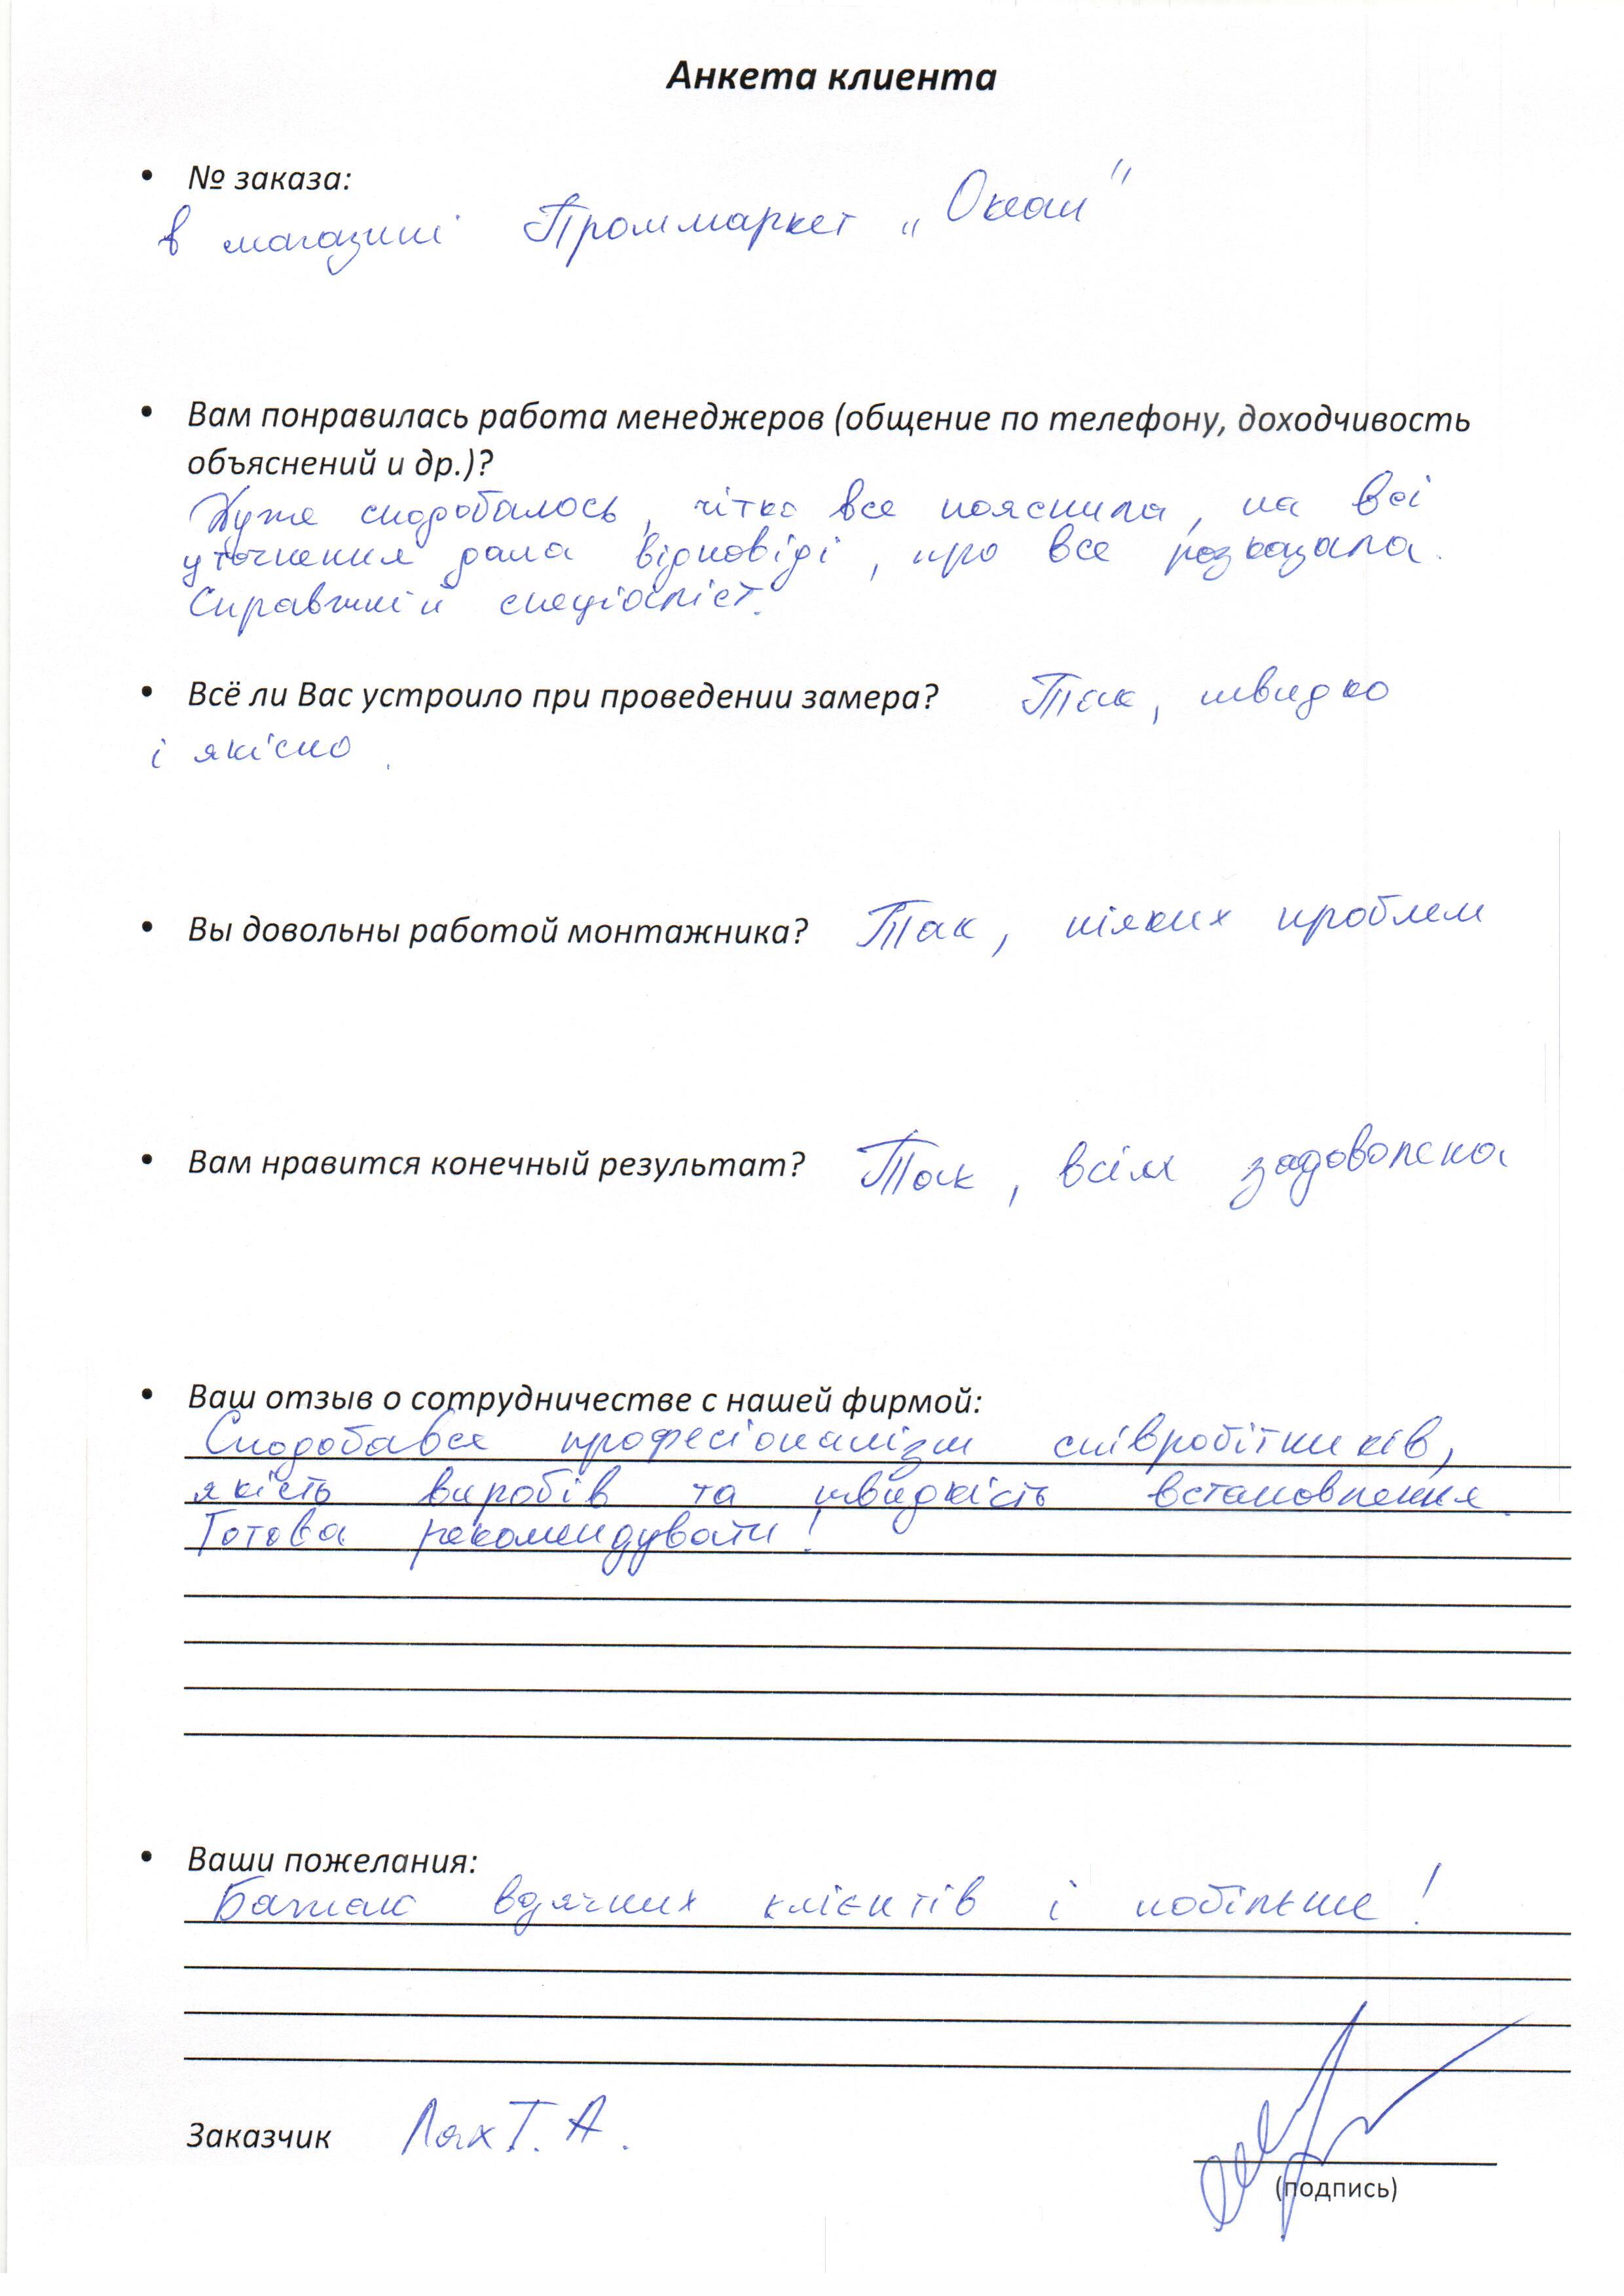 Анкета клиента
• № заказа:
в магазині Проммаркет „Океан"
• Вам понравилась работа менеджеров (общение по телефону, доходчивость
объяснений и др.)?
Дуже сподобалось, чітко все пояснила, на всі
уточнення дала відповіді, про все розказала.
Справжній спеціаліст.
• Всё ли Вас устроило при проведении замера? Так, швидко
і якісно.
• Вы довольны работой монтажника? Так, ніяких проблем
• Вам нравится конечный результат? Так, всім задоволена
• Ваш отзыв о сотрудничестве с нашей фирмой:
Сподобався професіоналізм співробітників,
якість виробів та швидкість встановлення.
Готова рекомендувати!
• Ваши пожелания:
Бажаю вдячних клієнтів і побільше!
Заказчик Лях Т. А.
(подпись)